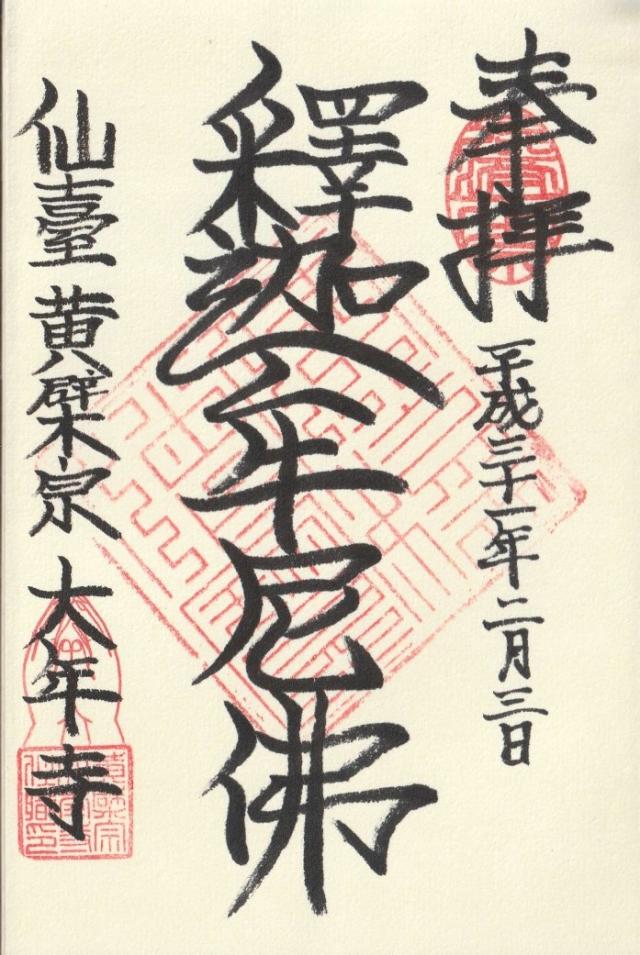 奉拝
平成三十一年二月三日
釋迦牟尼佛
仙臺 黄檗宗 大年寺